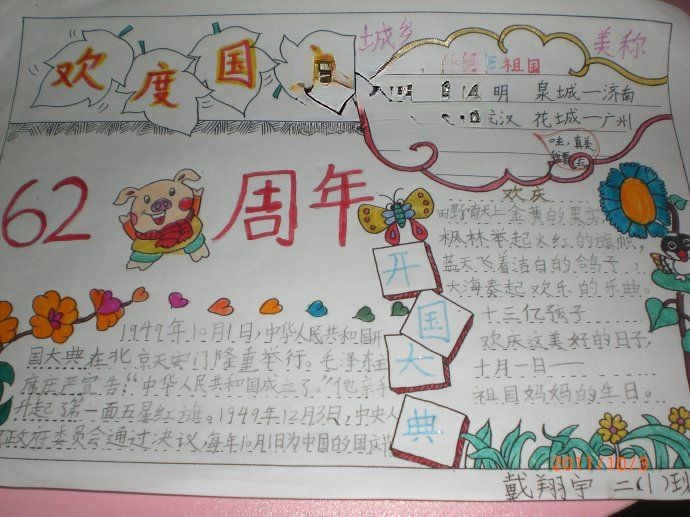 欢度国
城乡
美称
祖国
明 泉城一济南
汉 花城一广州
哇，真美
我要去
62
周年
欢庆
田野献上金黄的果实，
枫林举起火红的旗帜，
蓝天飞着洁白的鸽子，
大海奏起欢乐的乐曲。
十三亿孩子
欢庆这美好的日子，
十月一日——
祖国妈妈的生日。
开国大典
1949年10月1日，中华人民共和国开
国大典在北京天安门隆重举行。毛泽东主
席庄严宣告：“中华人民共和国成立了。”他亲手
升起了第一面五星红旗。1949年12月3日，中央人
政府委员会通过决议，每年10月1日为中国的国庆
2011/10/3
戴翔宇 二(1)班